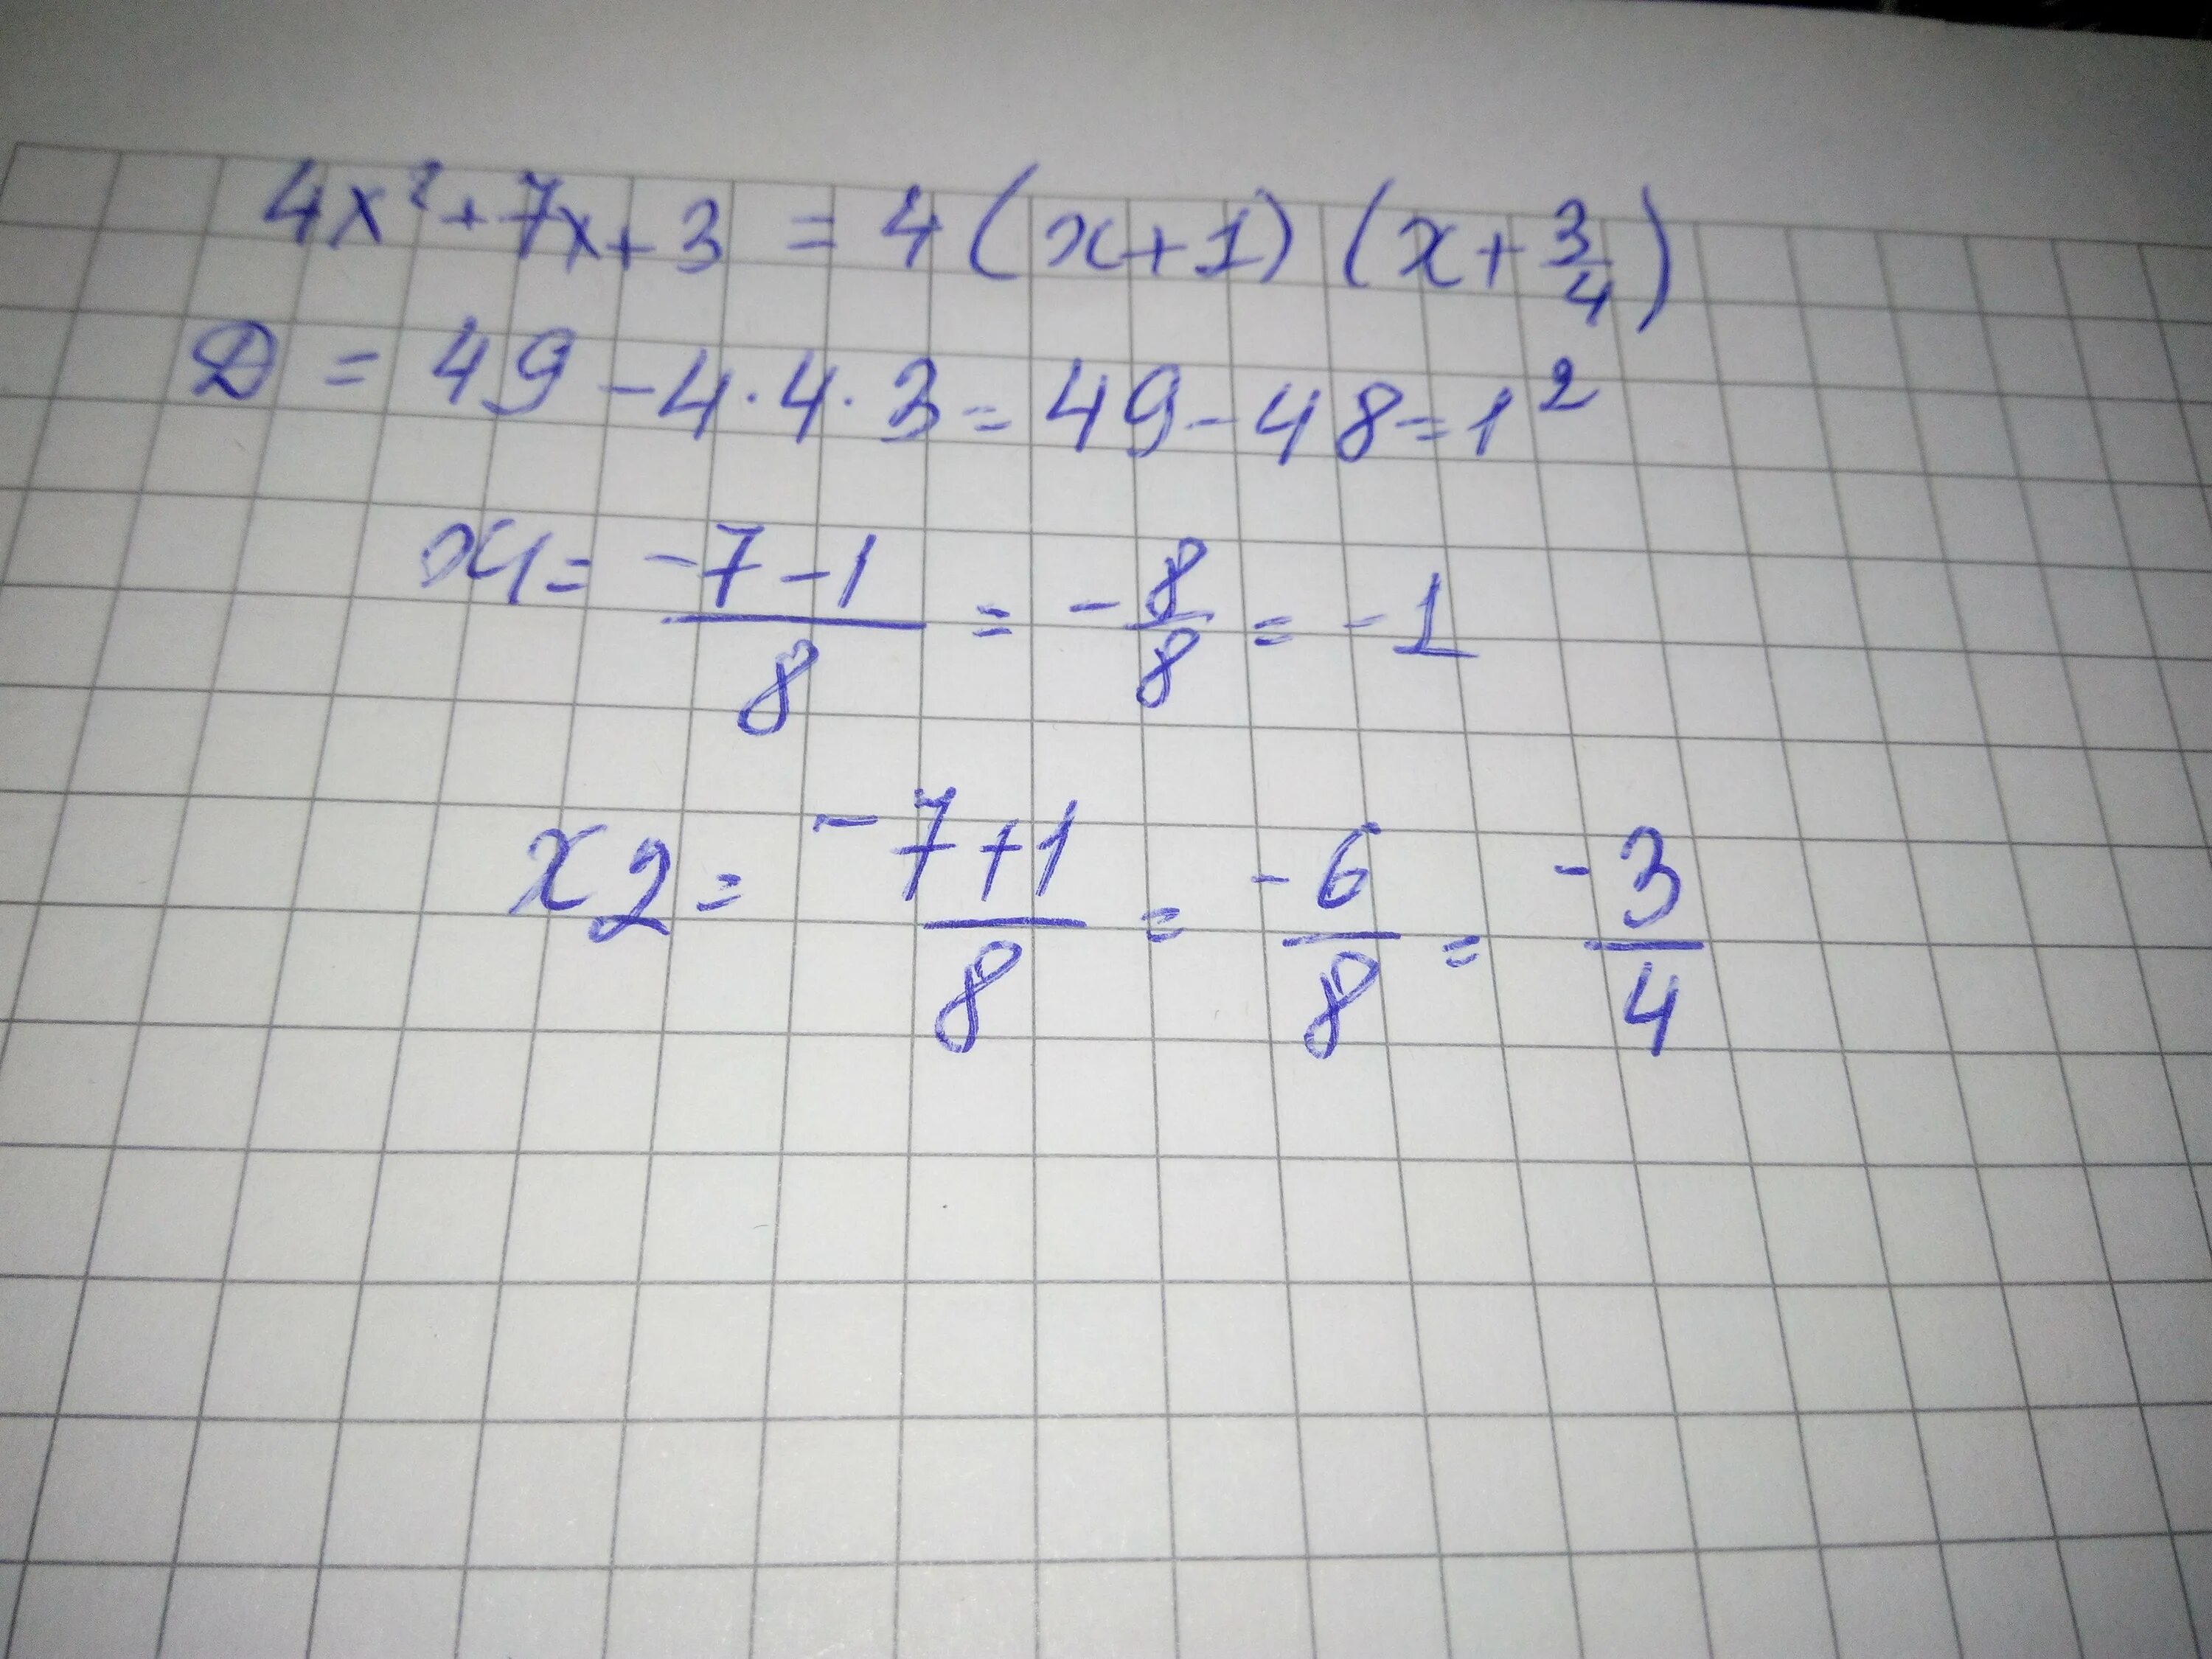 4x² + 7x + 3 = 4 (x + 1) (x + 3/4)
D = 49 - 4 · 4 · 3 = 49 - 48 = 1²
x1 = (-7 - 1)/8 = -8/8 = -1
x2 = (-7 + 1)/8 = -6/8 = -3/4